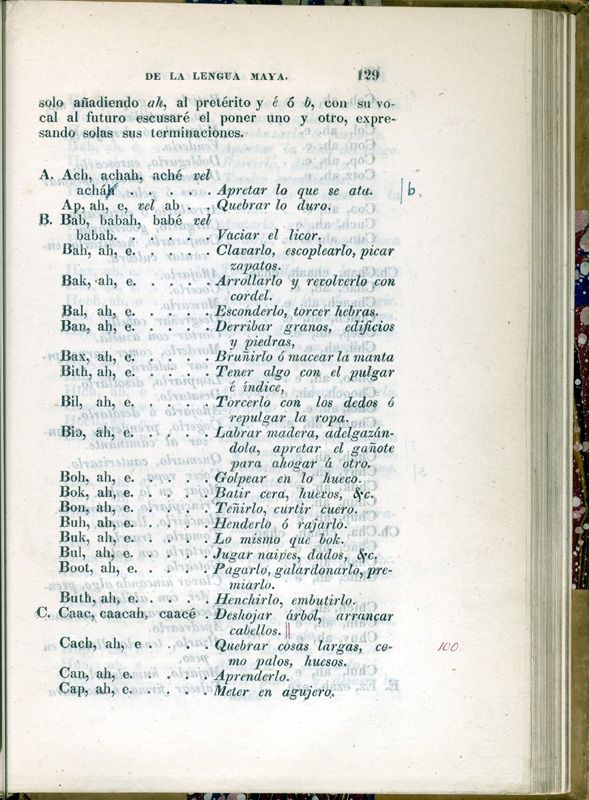 DE LA LENGUA MAYA. 129
solo añadiendo ah, al pretérito y é ó b, con su vo-
cal al futuro escusaré el poner uno y otro, expre-
sando solas sus terminaciones.
A. Ach, achah, aché vel
acháh . . . . . Apretar lo que se ata. | b.
Ap, ah, e, vel ab . . Quebrar lo duro.
B. Bab, babah, babé vel
babab. . . . . . Vaciar el licor.
Bah, ah, e. . . . . Clavarlo, escoplearlo, picar
zapatos.
Bak, ah, e. . . . . Arrollarlo y revolverlo con
cordel.
Bal, ah, e. . . . . Esconderlo, torcer hebras.
Ban, ah, e. . . . . Derribar granos, edificios
y piedras,
Bax, ah, e. . . . . Bruñirlo ó macear la manta
Bith, ah, e. . . . . Tener algo con el pulgar
é índice,
Bil, ah, e. . . . . Torcerlo con los dedos ó
repulgar la ropa.
Biɔ, ah, e. . . . . Labrar madera, adelgazán-
dola, apretar el gañote
para ahogar á otro.
Boh, ah, e. . . . . Golpear en lo hueco.
Bok, ah, e. . . . . Batir cera, huevos, &c.
Bon, ah, e. . . . . Teñirlo, curtir cuero.
Buh, ah, e. . . . . Henderlo ó rajarlo.
Buk, ah, e. . . . . Lo mismo que bok.
Bul, ah, e. . . . . Jugar naipes, dados, &c,
Boot, ah, e. . . . . Pagarlo, galardonarlo, pre-
miarlo.
Buth, ah, e. . . . . Henchirlo, embutirlo.
C. Caac, caacah, caacé . Deshojar árbol, arrancar
cabellos. ||
Cach, ah, e . . . . Quebrar cosas largas, co-
mo palos, huesos. 100.
Can, ah, e. . . . . Aprenderlo.
Cap, ah, e. . . . . Meter en agujero.